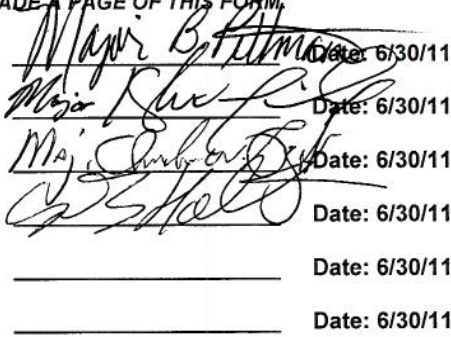 ADE A PAGE OF THIS FORM.
Major B. Pittman Date: 6/30/11
Major Date: 6/30/11
Maj. Date: 6/30/11
Date: 6/30/11
Date: 6/30/11
Date: 6/30/11